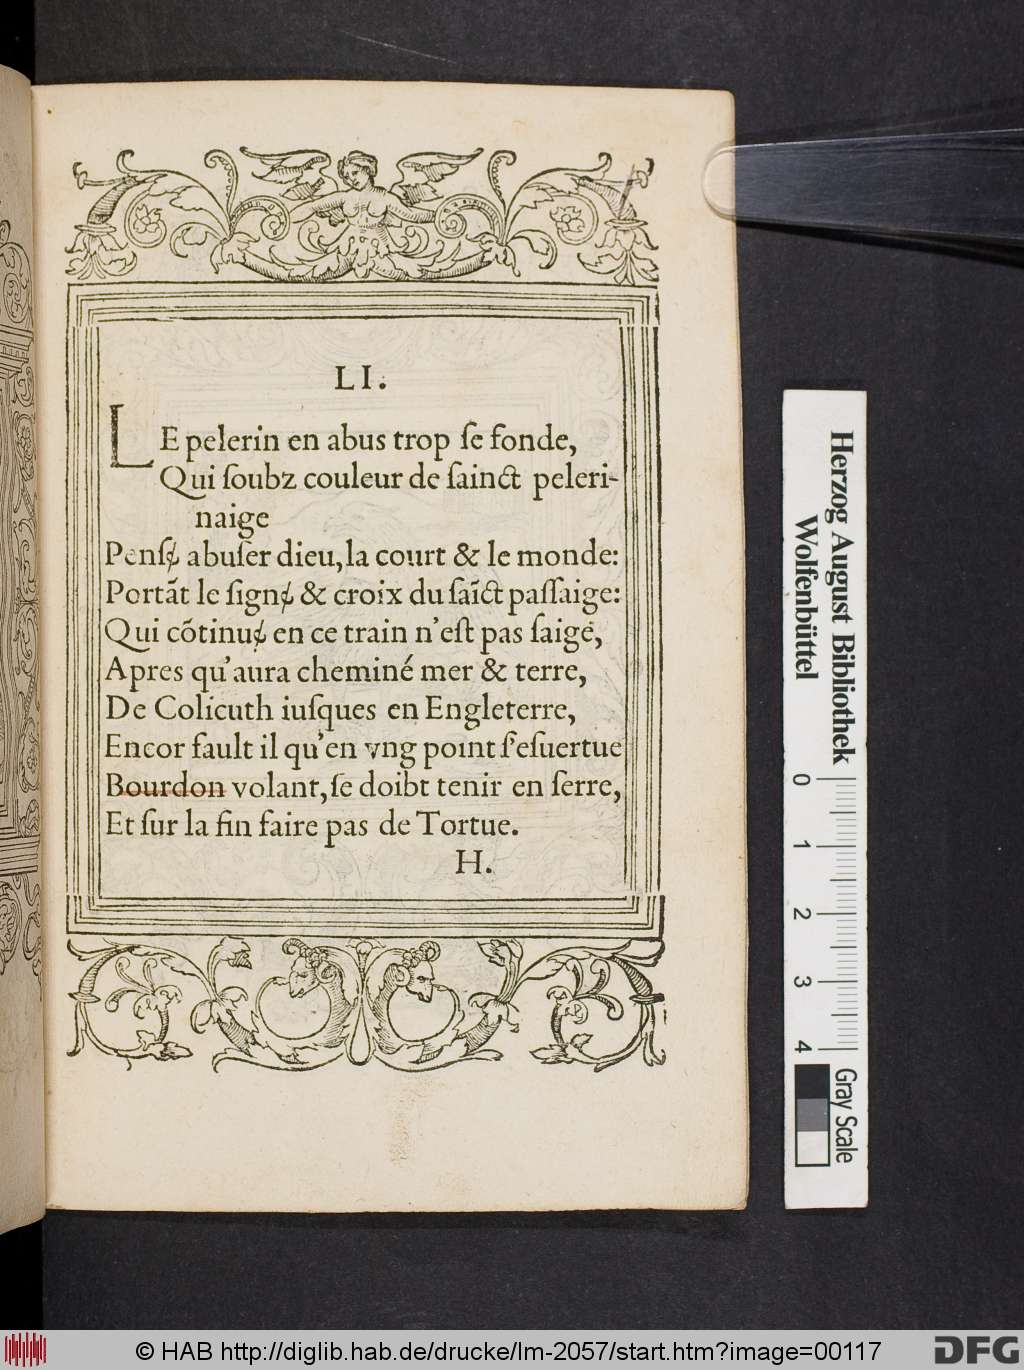 LI.
LE pelerin en abus trop ſe fonde,
Qui ſoubz couleur de ſainct peleri-
naige
Penſɇ abuſer dieu, la court & le monde:
Portãt le ſignɇ & croix du ſaĩct paſſaige:
Qui cõtinuɇ en ce train n'eſt pas ſaige,
Apres qu'aura cheminé mer & terre,
De Colicuth iuſques en Engleterre,
Encor fault il qu'en vng point ſ'eſuertue
Bourdon volant, ſe doibt tenir en ſerre,
Et ſur la fin faire pas de Tortue.
H.
Herzog August Bibliothek
Wolfenbüttel
0 1 2 3 4
Gray Scale
© HAB http://diglib.hab.de/drucke/lm-2057/start.htm?image=00117
DFG